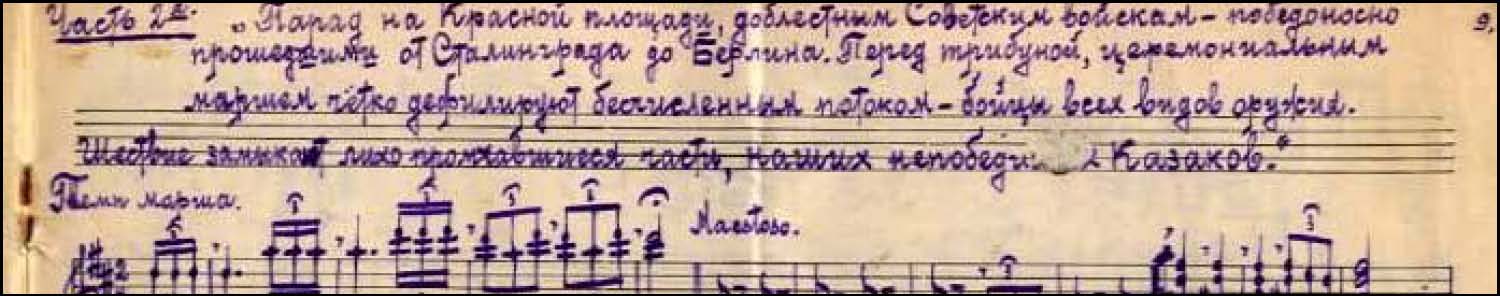 Часть 2я. „Парад на Красной площади, доблестным Советским войскам – победоносно 9.
прошедшими от Сталинграда до Берлина. Перед трибуной, церемониальным
маршем чётко дефилируют бесчисленным потоком – бойцы всех видов оружия.
Шествие замыкают лихо промчавшиеся части, наших Казаков."
Темп марша.
Maestoso.